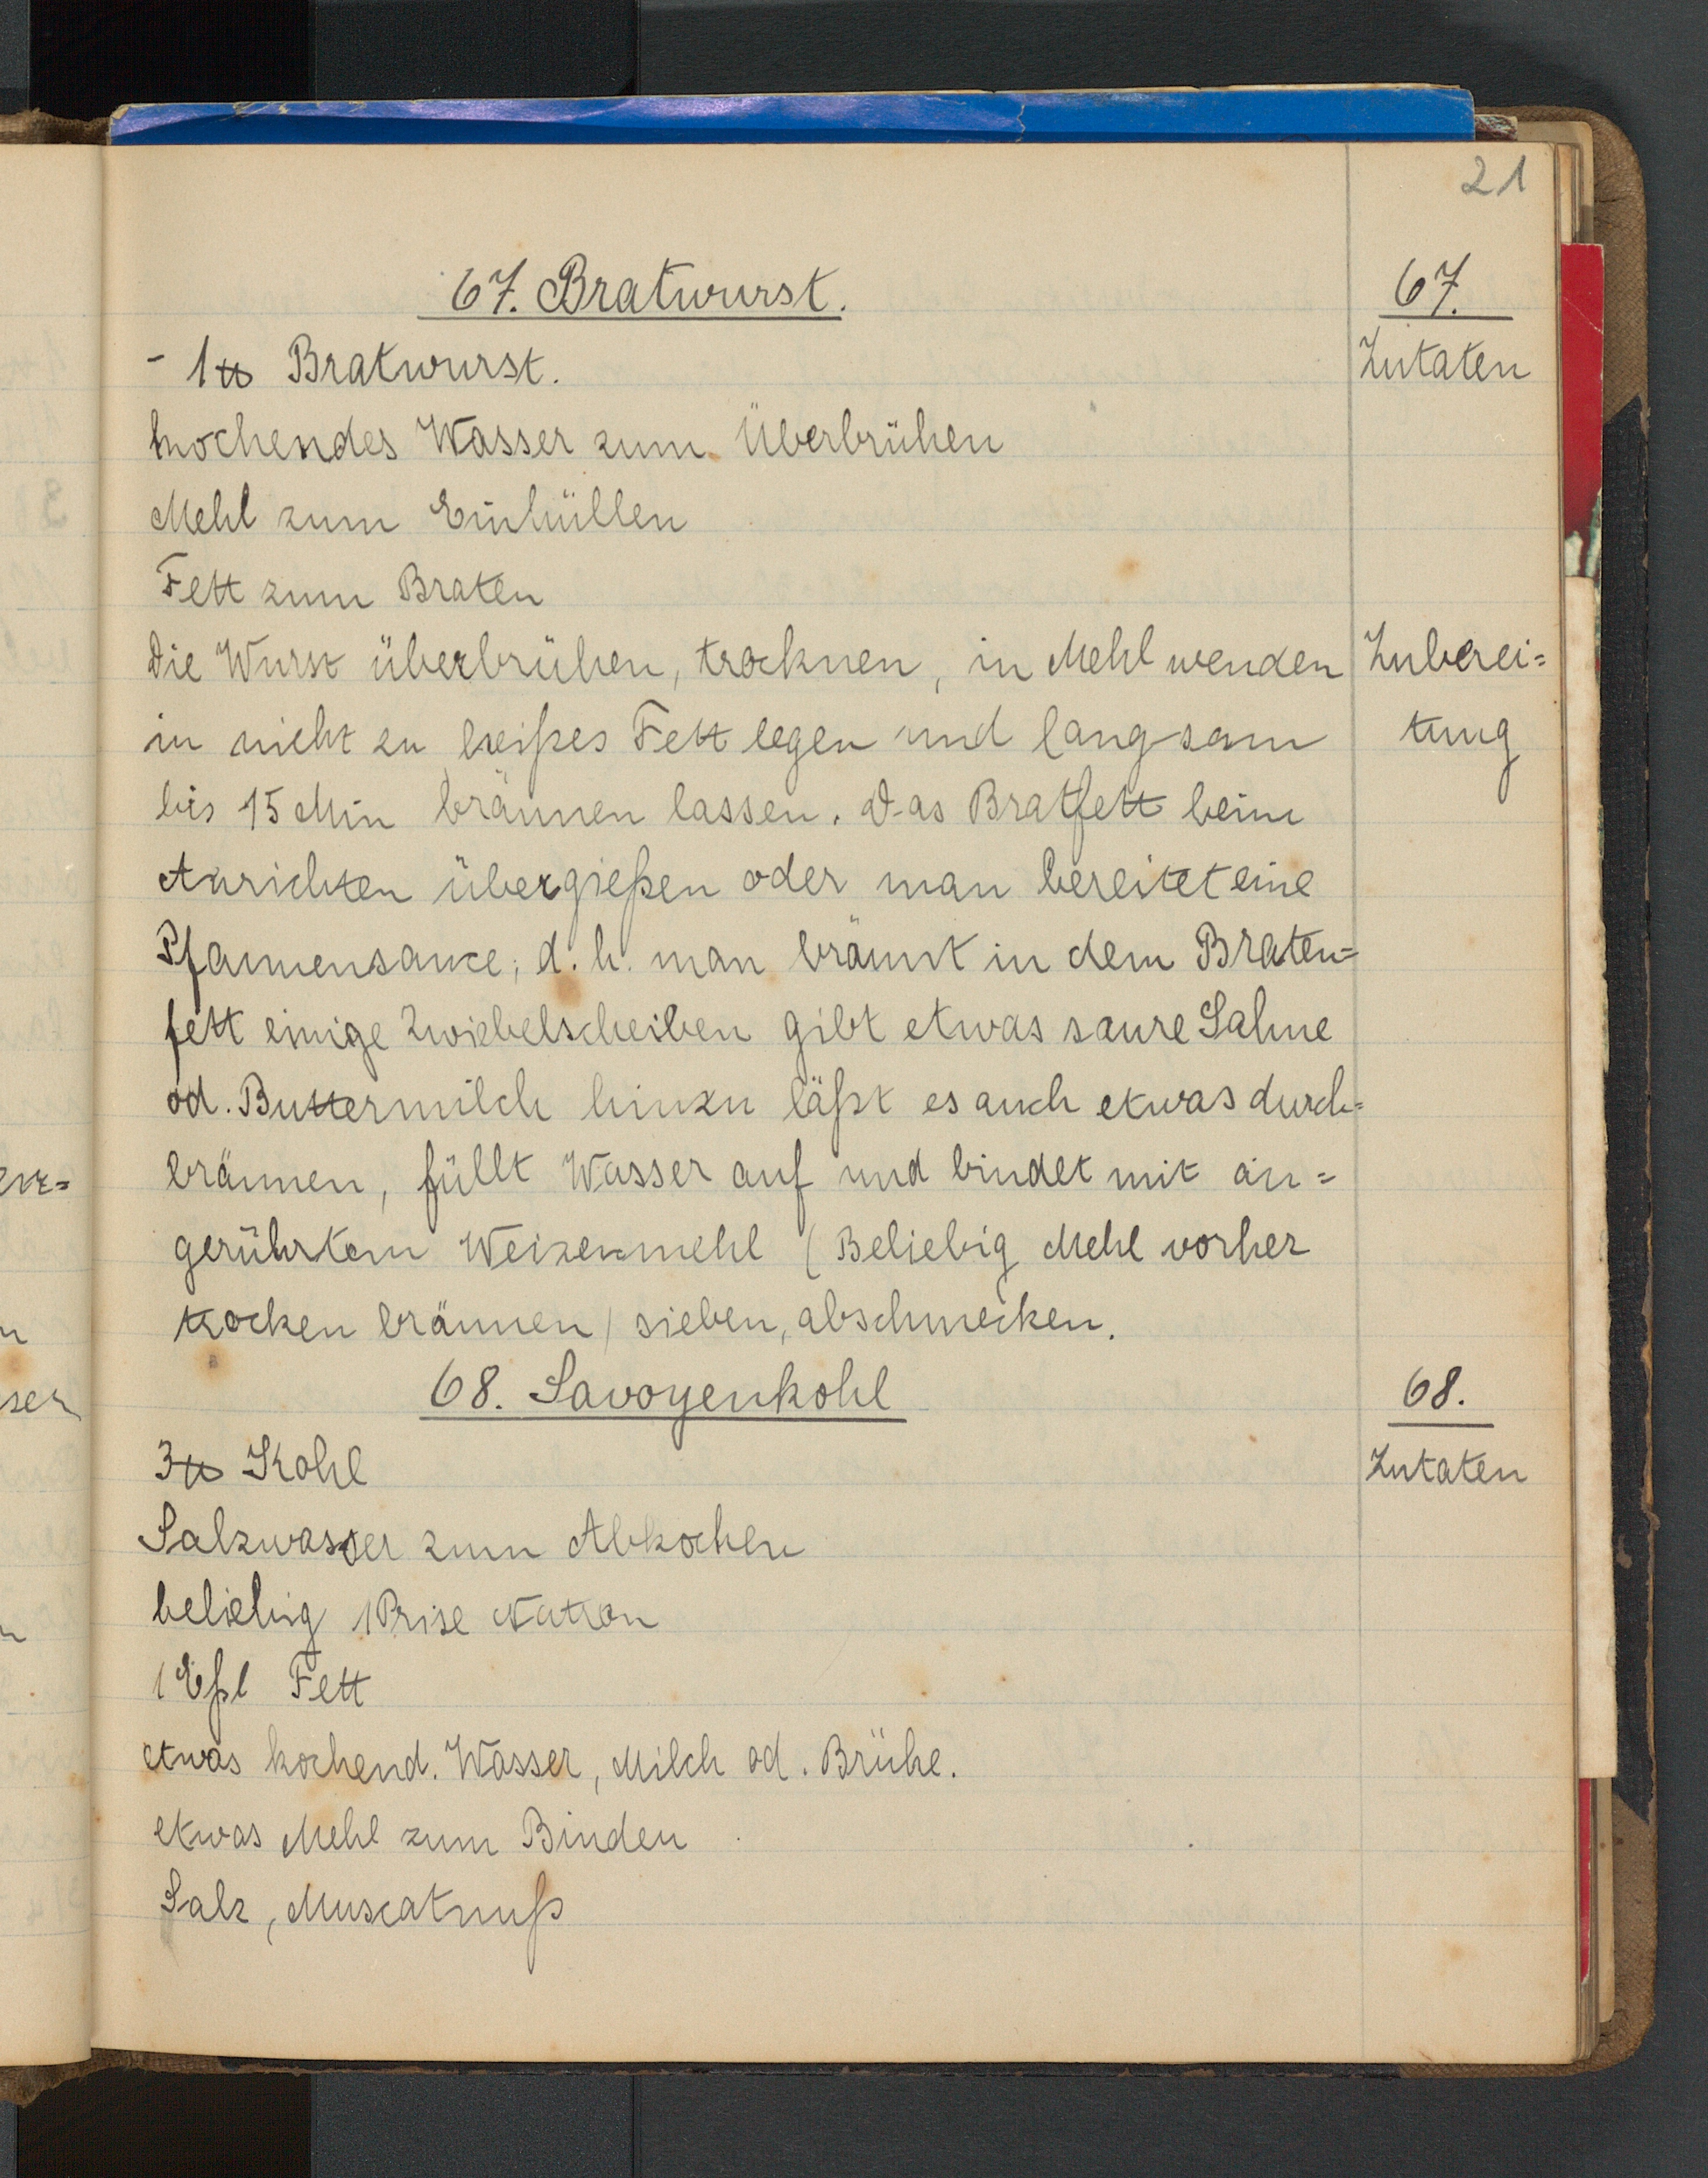 21
67. Bratwurst.
67.
- 1 ℔ Bratwurst.
Zutaten
kochendes Wasser zum Überbrühen
Mehl zum Einhüllen
Fett zum Braten
Die Wurst überbrühen, trocknen, in Mehl wenden
Zuberei=
in nicht zu heißes Fett legen und langsam
tung
bis 15 Min bräunen lassen. Das Bratfett beim
Anrichten übergießen oder man bereitet eine
Pfannensauce; d. h. man bräunt in dem Braten=
fett einige Zwiebelscheiben gibt etwas saure Sahne
od. Buttermilch hinzu läßt es auch etwas durch=
bräunen, füllt Wasser auf und bindet mit an=
gerührtem Weizenmehl (Beliebig Mehl vorher
trocken bräunen) sieben, abschmecken.
68. Savoyenkohl
68.
3 ℔ Kohl
Zutaten
Salzwasser zum Abkochen
beliebig 1 Prise Natron
1 Eßl Fett
etwas kochend. Wasser, Milch od. Brühe.
etwas Mehl zum Binden
Salz, Muscatnuß